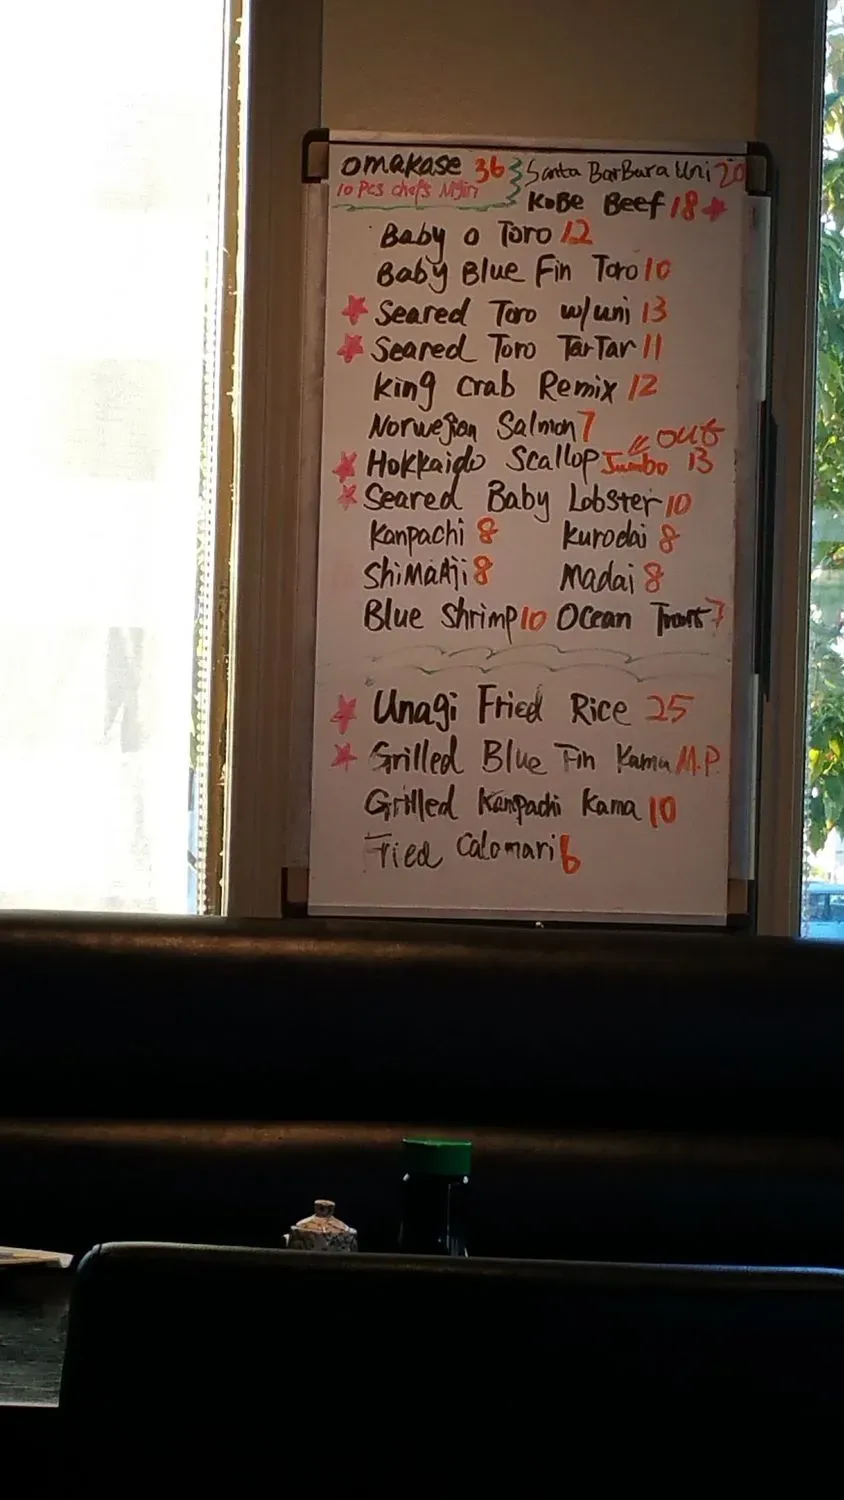 omakase 36 Santa BarBara Uni 20
10 pcs chefs Nigiri
KoBe Beef 18
Baby o Toro 12
Baby Blue Fin Toro 10
Seared Toro w/uni 13
Seared Toro TarTar 11
King Crab Remix 12
Norwegian Salmon 7
out
Hokkaido Scallop Jumbo 13
Seared Baby Lobster 10
Kanpachi 8 Kurodai 8
ShiMaAji 8 Madai 8
Blue Shrimp 10 Ocean Trout 7
Unagi Fried Rice 25
Grilled Blue Fin Kama M.P.
Grilled Kanpachi Kama 10
Fried Calamari 6